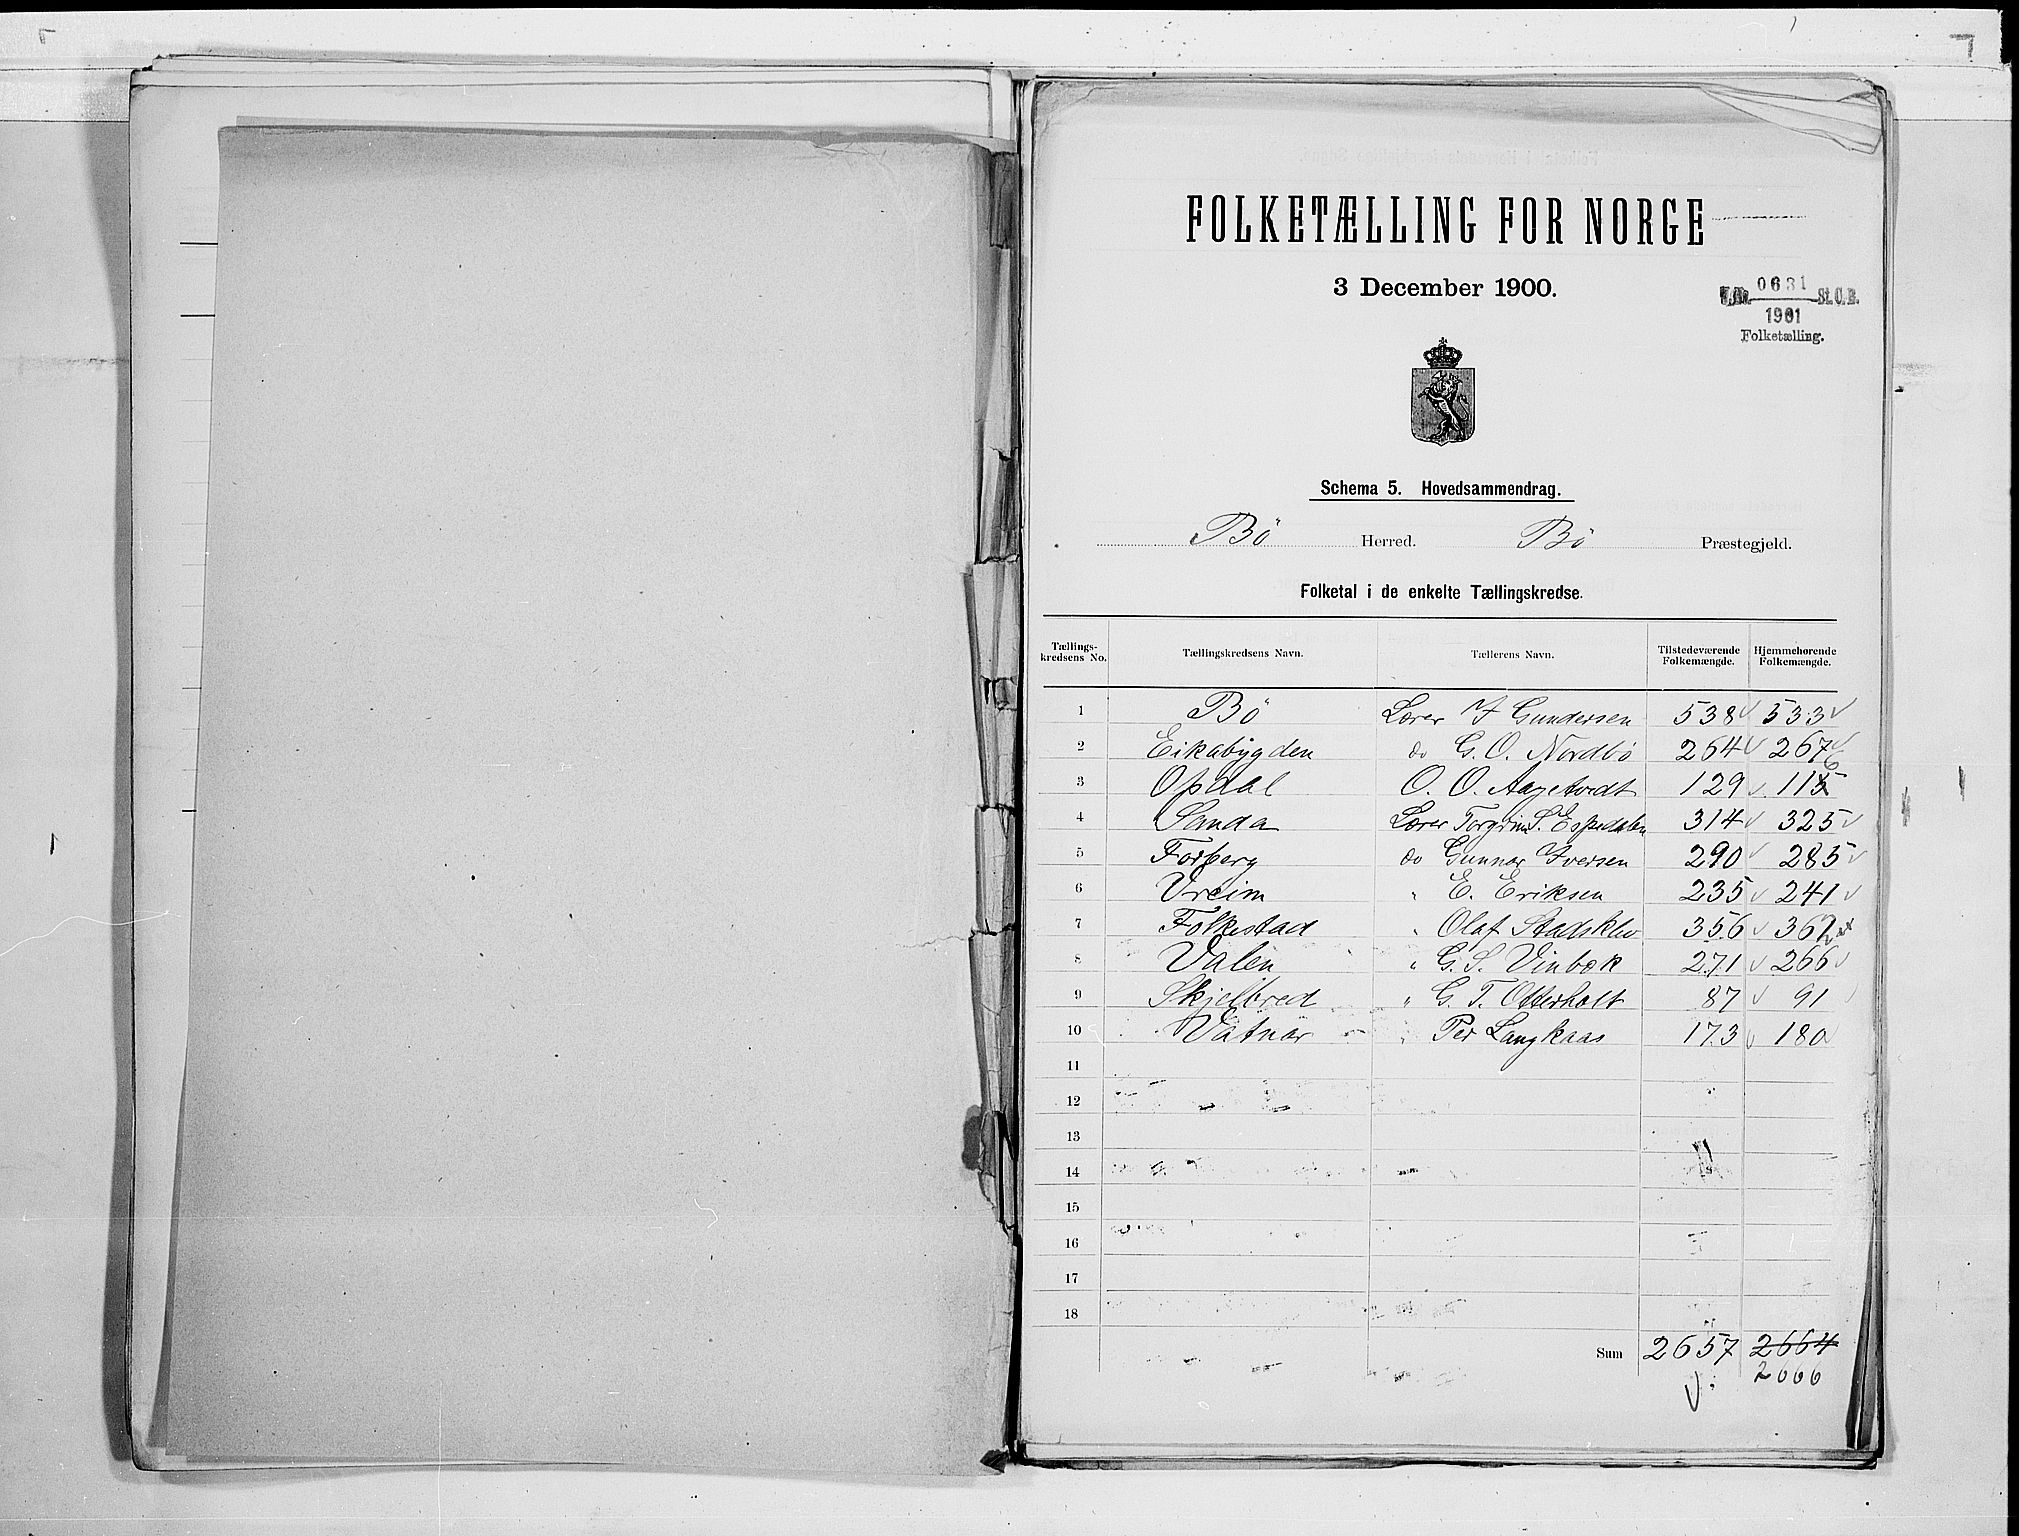 FOLKETÆLLING FOR NORGE
3 December 1900.
0631
St. C. B.
1901
Folketælling.
Schema 5. Hovedsammendrag.
Bö Herred. Bö Præstegjeld.
Folketal i de enkelte Tællingskredse.
Tællingskredsens No. Tællingskredsens Navn. Tællerens Navn. Tilstedeværende Folkemængde. Hjemmehørende Folkemængde.
1 Bö Lærer I Gundersen 538 533
2 Eikabygden do G. O. Nordbö 264 267
3 Opdal O. O. Aagetvedt 129 116
4 Sanda Lærer Torgrim S. Espedalen 314 325
5 Forberg do Gunnar Iversen 290 285
6 Vreim " E. Eriksen 235 241
7 Folkestad " Olaf Stadsklev 356 362
8 Valen " G. S. Vinbæk 271 266
9 Skjelbred " G. T. Otterholt 87 91
10 Vatnar " Per Langkaas 173 180
11
12
13
14
15
16
17
18
Sum 2657 2664
2666